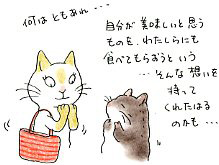 何はともあれ・・・
自分が美味しいと思う
ものを、わたしらにも
食べてもらおうという
・・・そんな想いを
持って
くれたはる
のかも・・・